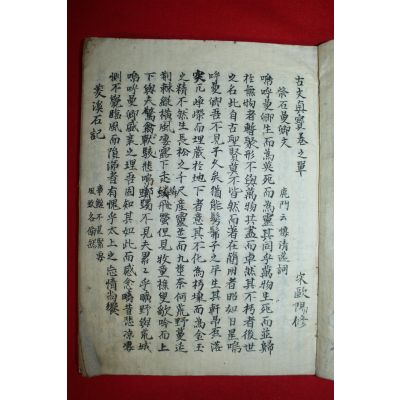 古文眞寶卷之單
祭石曼卿文 宋歐陽修
鹿門云悽淸逸詞
嗚呼曼卿生而爲英死而爲靈其同乎萬物生死而並歸
於無物者暫聚形不與萬物共盡而卓然其不朽者後世
之名此自古聖賢莫不皆然而著在簡冊者昭如日星嗚
呼曼卿吾不見子久矣猶能髣髴子之平生其軒昂磊落
突兀崢嶸而埋藏於地下者意其不化爲朽壤而爲金玉
之精不然生長松之千尺產靈芝而九莖奈何荒野蔓延
荊棘縱橫風凄露下走燐飛螢但見牧童樵叟歌吟而上
下與夫驚禽駭獸悲鳴躑躅不見夫累〻乎曠野與荒城
嗚呼曼卿盛衰之理吾固知其如此而感念疇昔悲凉悽
愴不覺臨風而隕涕者有愧乎太上之忘情尙饗
菱溪石記